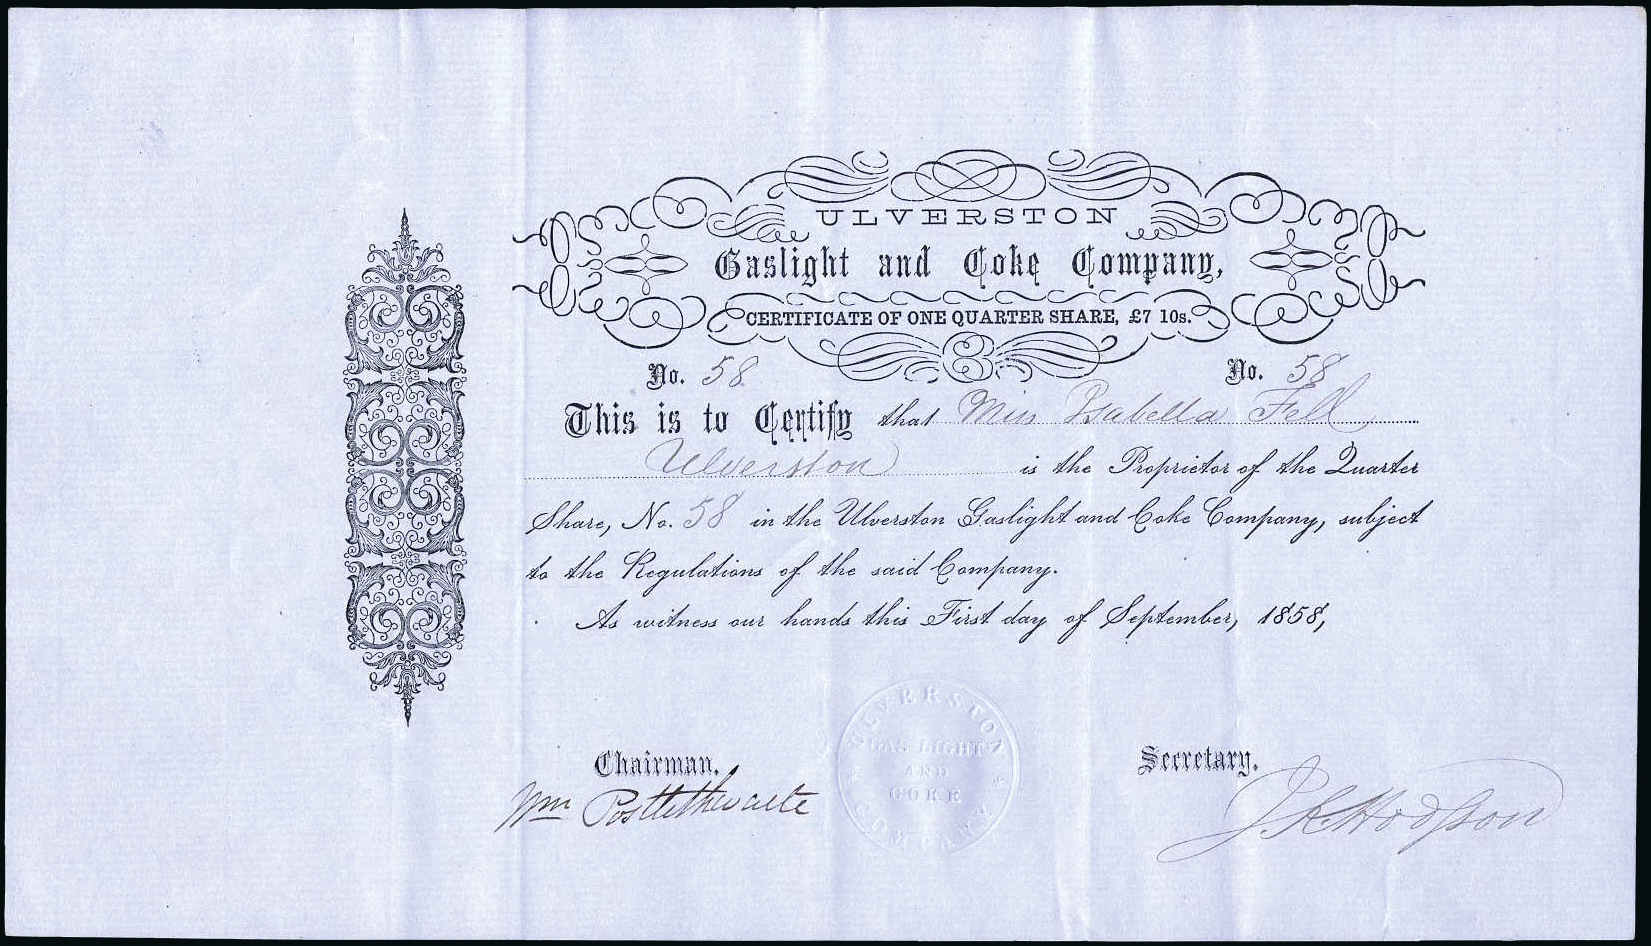 ULVERSTON
Gaslight and Coke Company,
CERTIFICATE OF ONE QUARTER SHARE, £7 10s.
No. 58 No. 58
This is to Certify that Miss Isabella Fell
Ulverston is the Proprietor of the Quarter
Share, No. 58 in the Ulverston Gaslight and Coke Company, subject
to the Regulations of the said Company.
As witness our hands this First day of September, 1858,
ULVERSTON
GAS LIGHT
AND
COKE
COMPANY
Chairman. Secretary.
Wm Postlethwaite J. K. Hodgson